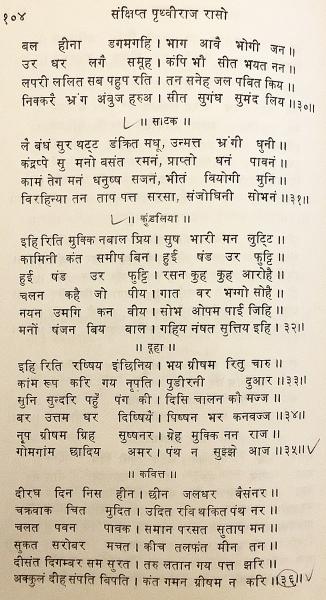 १०४ संक्षिप्त पृथ्वीराज रासो
बल हीना डगमगहि । भाग आवै भोगी जन ॥
उर धर लगै समूह । कंपि भौ सीत भयत नन ॥
लपरी ललित सब पहुप रति । तन सनेह जल पवित किय ॥
निकरै भ्रंग अंवुज हरुअ । सीत सुगंध सुमंद लिय ॥३०॥
॥ साटक ॥
लै बंधं सुर थट्ट डंकित मधू, उन्मत्त भ्रंगी धुनी ॥
कंद्रप्पे सु मनो बसंत रमनं, प्राप्तो धनं पावनं ॥
कामं तेग मनं धनुष्ष सजनं, भीतं वियोगी मुनि ॥
विरहिन्या तन ताप पत्त सरसा, संजोघिनी सोभनं ॥३१॥
॥ कुंडलिया ॥
इहि रिति मुक्कि नबाल प्रिय । सुष भारी मन लुट्टि ॥
कामिनी कंत समीप बिन । हुई षंड उर फुट्टि ॥
हुई षंड उर फुट्टि । रसन कुह कुह आरोहै ॥
चलन कहै जो पीय । गात बर भग्गो सोहै ॥
नयन उमगि कन वीय । सोभ ओपम पाई जिहि ॥
मनों षंजन बिय बाल । गहिय नंषत सुत्तिय इहि ॥३२॥
॥ दूहा ॥
इहि रिति रष्षिय इंछिनिय । भय ग्रीषम रितु चारु ॥
कांम रूप करि गय नृपति । पुडीरनी दुआर ॥३३॥
सुनि सुन्दरि पहुँ पंग की । दिसि चालन कौ मज्ज ॥
बर उत्तम धर दिष्षियैं । पिष्षन भर कनवज्ज ॥३४॥
नृप ग्रीषम ग्रिह सुष्षनर । ग्रेह मुक्कि नन राज ॥
गोमगांम छादिय अमर । पंथ न सुझ्झे आज ॥३५॥
॥ कवित्त ॥
दीरघ दिन निस हीन । छीन जलधर वैसंनर ॥
चक्रवाक चित मुदित । उदित रवि थकित पंथ नर ॥
चलत पवन पावक । समान परसत सुताप मन ॥
सुकत सरोबर मचत । कीच तलफंत मीन तन ॥
दीसंत दिगम्बर सम सुरत । तरु लतान गय पत्त झरि ॥
अक्कुलं दीह संपति विपति । कंत गमन ग्रीषम न करि ॥३६॥